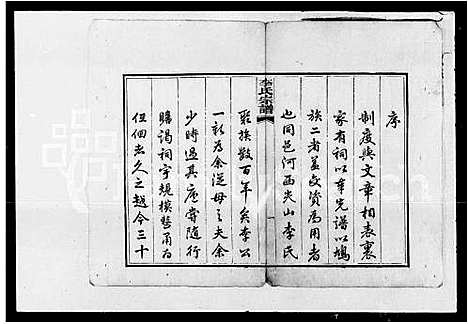 序
制度與文章相表裏
家有祠以奉先譜以鳩
族二者並交資為用者
也同邑河西尖山李氏
李氏宗譜
聚族數百年矣李公
一新為余從母之夫余
少時過其廬嘗隨行
瞻謁祠宇規模甚甬為
但佃去久之越今三十